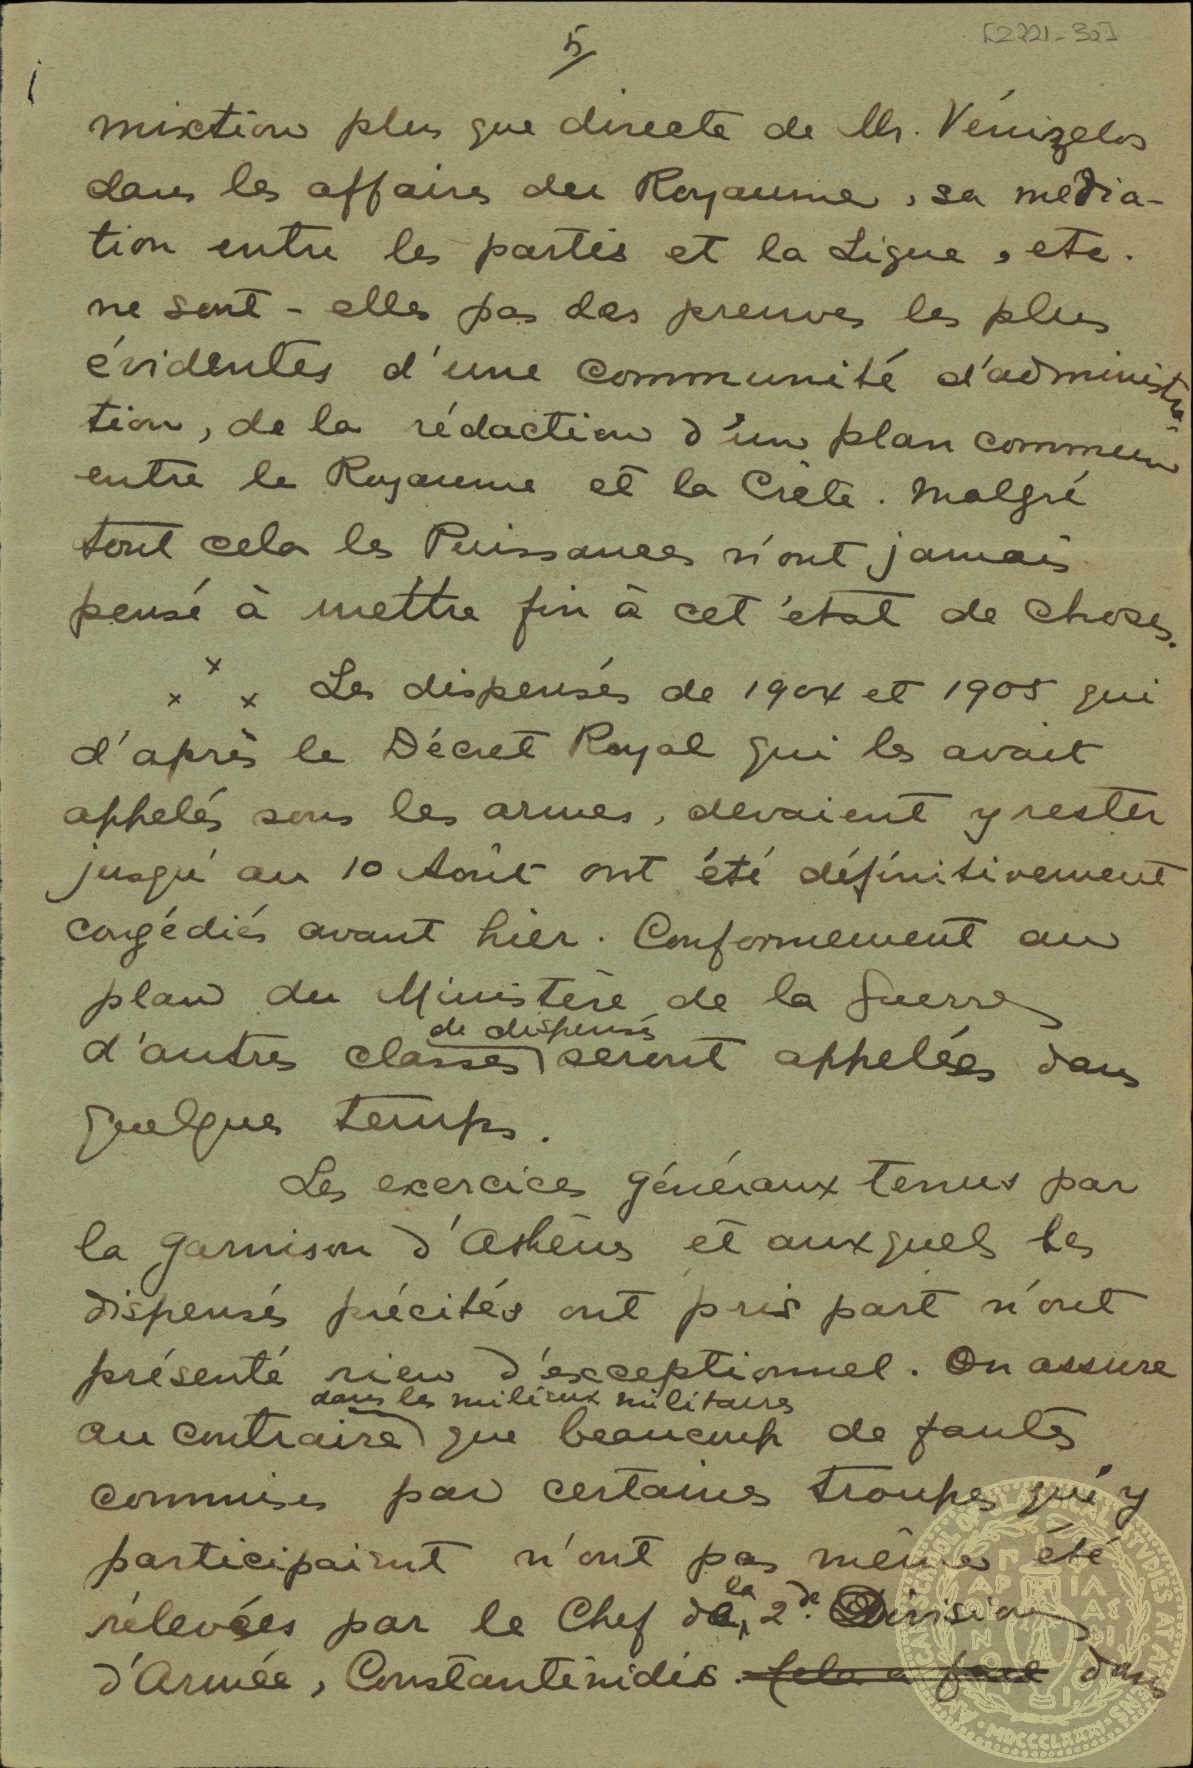 5/
[2221-30]
mixtion plus que directe de Mr. Vénizelos
dans les affaires du Royaume, sa média-
tion entre les partis et la Ligue, etc.
ne sont-elles pas des preuves les plus
évidentes d'une communité d'administra-
tion, de la rédaction d'un plan commun
entre le Royaume et la Crète. Malgré
tout cela les Puissances n'ont jamais
pensé à mettre fin à cet état de choses.
x x x Les dispensés de 1904 et 1905 qui
d'après le Décret Royal qui les avait
appelés sous les armes, devaient y rester
jusqu'au 10 Août ont été définitivement
congédiés avant hier. Conformement au
plan du Ministère de la Guerre
de dispensés
d'autres classes seront appelées dans
quelques temps.
Les exercices généraux tenus par
la garnison d'Athènes et auxquels les
dispensés précités ont pris part n'ont
présenté rien d'exceptionnel. On assure
dans les milieux militaires
au contraire que beaucoup de fautes
commises par certaines troupes qui y
participaient n'ont pas même été
rélevées par le Chef de la 2de Division
d'Armée, Constantinidis. Cela a fait dans